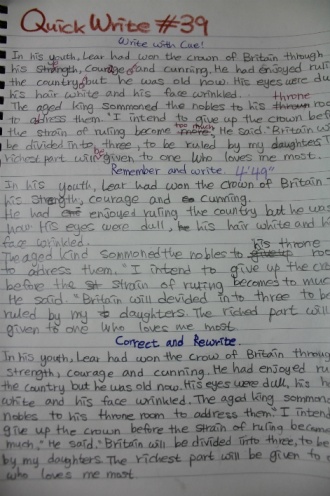 Quick Write #39
Write with Cue!
In his youth, Lear had won the crown of Britain through
his strength, courage and cunning. He had enjoyed ruling
the country, but he was old now. His eyes were du
his hair white and his face wrinkled. throne
The aged king sommoned the nobles to his thrown roo
to address them. "I intend to give up the crown befor
the strain of ruling become too much," He said. "Britain wi
be divided into three, to be ruled by my daughters. T
richest part will be given to one who loves me most.
Remember and write. 4'49"
In his youth, Lear had won the crown of Britain
his strength, courage and cunning.
He had enjoyed ruling the country but he was
now His eyes were dull, his hair white and hi
face wrinkled. his throne
The aged kind sommoned the nobles to roo
to adress them. "I intend to give up the cro
before the strain of ruling becomed to muc
He said. "Britain will devided into three to be
ruled by my daughters. The riched part will
given to one who loves me most.
Correct and Rewrite.
In his youth, Lear had won the crow of Britain throug
strength, courage and cunning. He had enjoyed ru
the country but he was old now. His eyes were dull, his h
white and his face wrinkled. The aged king sommone
nobles to his throne room to address them. "I intend
give up the crown before the strain of ruling became
much," He said. "Britain will be divided into three, to be
by my daughters. The richest part will be given to
who loves me most